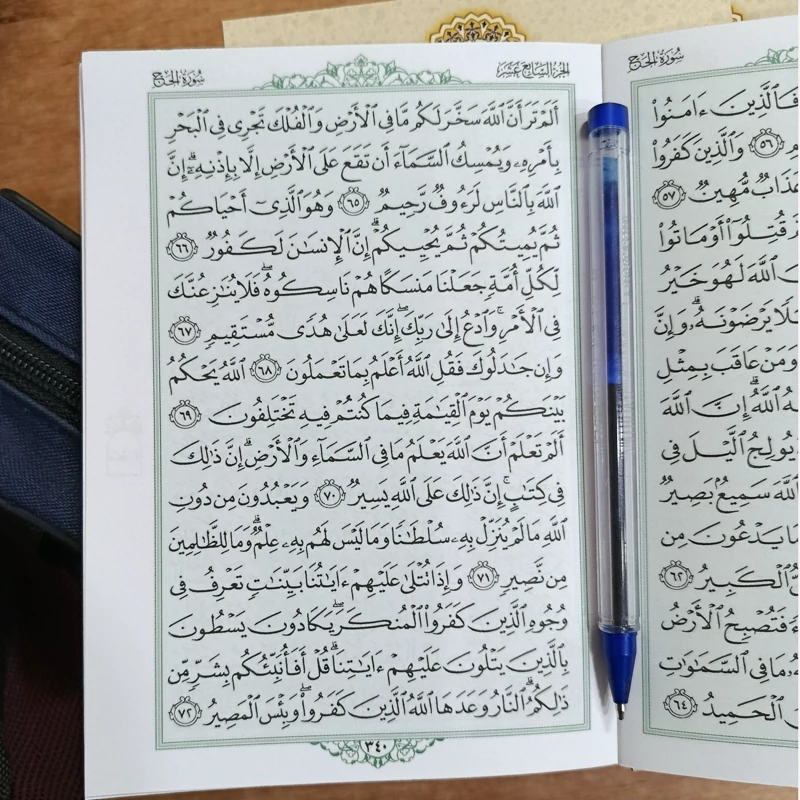 سُورَةُ الحَجِّ
فَالَّذِينَ ءَامَنُوا۟
٥٦ وَٱلَّذِينَ كَفَرُوا۟
عَذَابٌ مُّهِينٌ ٥٧
قُتِلُوٓا۟ أَوْ مَاتُوا۟
ٱللَّهَ لَهُوَ خَيْرُ
يَرْضَوْنَهُۥ ۗ وَإِنَّ
وَمَنْ عَاقَبَ بِمِثْلِ
ٱللَّهُ ۗ إِنَّ ٱللَّهَ
يُولِجُ ٱلَّيْلَ فِى
ٱللَّهَ سَمِيعٌۢ بَصِيرٌ
مَا يَدْعُونَ مِن
ٱلْكَبِيرُ ٦٢
فَتُصْبِحُ ٱلْأَرْضُ
مَا فِى ٱلسَّمَـٰوَٰتِ
ٱلْحَمِيدُ ٦٤
الجُزْءُ السَّابِعَ عَشَرَ
سُورَةُ الحَجِّ
أَلَمْ تَرَ أَنَّ ٱللَّهَ سَخَّرَ لَكُم مَّا فِى ٱلْأَرْضِ وَٱلْفُلْكَ تَجْرِى فِى ٱلْبَحْرِ
بِأَمْرِهِۦ وَيُمْسِكُ ٱلسَّمَآءَ أَن تَقَعَ عَلَى ٱلْأَرْضِ إِلَّا بِإِذْنِهِۦٓ ۗ إِنَّ
ٱللَّهَ بِٱلنَّاسِ لَرَءُوفٌ رَّحِيمٌ ٦٥ وَهُوَ ٱلَّذِىٓ أَحْيَاكُمْ
ثُمَّ يُمِيتُكُمْ ثُمَّ يُحْيِيكُمْ ۗ إِنَّ ٱلْإِنسَـٰنَ لَكَفُورٌ ٦٦
لِّكُلِّ أُمَّةٍ جَعَلْنَا مَنسَكًا هُمْ نَاسِكُوهُ ۖ فَلَا يُنَـٰزِعُنَّكَ
فِى ٱلْأَمْرِ ۚ وَٱدْعُ إِلَىٰ رَبِّكَ ۖ إِنَّكَ لَعَلَىٰ هُدًى مُّسْتَقِيمٍ ٦٧
وَإِن جَـٰدَلُوكَ فَقُلِ ٱللَّهُ أَعْلَمُ بِمَا تَعْمَلُونَ ٦٨ ٱللَّهُ يَحْكُمُ
بَيْنَكُمْ يَوْمَ ٱلْقِيَـٰمَةِ فِيمَا كُنتُمْ فِيهِ تَخْتَلِفُونَ ٦٩
أَلَمْ تَعْلَمْ أَنَّ ٱللَّهَ يَعْلَمُ مَا فِى ٱلسَّمَآءِ وَٱلْأَرْضِ ۗ إِنَّ ذَٰلِكَ
فِى كِتَـٰبٍ ۚ إِنَّ ذَٰلِكَ عَلَى ٱللَّهِ يَسِيرٌ ٧٠ وَيَعْبُدُونَ مِن دُونِ
ٱللَّهِ مَا لَمْ يُنَزِّلْ بِهِۦ سُلْطَـٰنًا وَمَا لَيْسَ لَهُم بِهِۦ عِلْمٌ ۗ وَمَا لِلظَّـٰلِمِينَ
مِن نَّصِيرٍ ٧١ وَإِذَا تُتْلَىٰ عَلَيْهِمْ ءَايَـٰتُنَا بَيِّنَـٰتٍ تَعْرِفُ فِى
وُجُوهِ ٱلَّذِينَ كَفَرُوا۟ ٱلْمُنكَرَ ۖ يَكَادُونَ يَسْطُونَ
بِٱلَّذِينَ يَتْلُونَ عَلَيْهِمْ ءَايَـٰتِنَا ۗ قُلْ أَفَأُنَبِّئُكُم بِشَرٍّ مِّن
ذَٰلِكُمُ ۗ ٱلنَّارُ وَعَدَهَا ٱللَّهُ ٱلَّذِينَ كَفَرُوا۟ ۖ وَبِئْسَ ٱلْمَصِيرُ ٧٢
٣٤٠